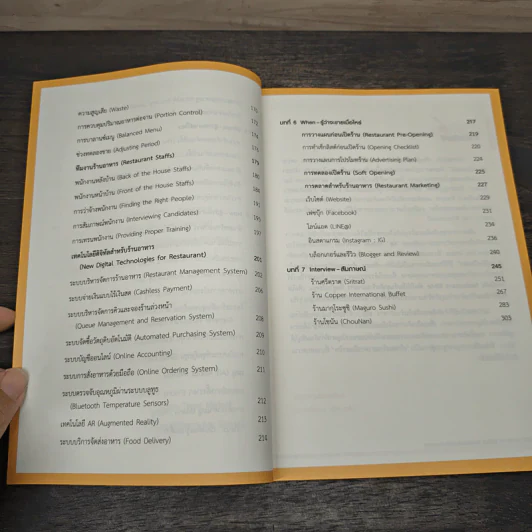 ความสูญเสีย (Waste)
การควบคุมปริมาณอาหารต่อจาน (Portion Control)
การบาลานซ์เมนู (Balanced Menu)
ช่วงทดลองขาย (Adjusting Period)
ทีมงานร้านอาหาร (Restaurant Staffs)
พนักงานหลังบ้าน (Back of the House Staffs)
พนักงานหน้าบ้าน (Front of the House Staffs)
การว่าจ้างพนักงาน (Finding the Right People)
การสัมภาษณ์พนักงาน (Interviewing Candidates)
การเทรนพนักงาน (Providing Proper Training)
เทคโนโลยีดิจิทัลสำหรับร้านอาหาร
(New Digital Technologies for Restaurant) 201
ระบบบริหารจัดการร้านอาหาร (Restaurant Management System) 202
ระบบจ่ายเงินแบบไร้เงินสด (Cashless Payment) 206
ระบบบริหารจัดการคิวและจองร้านล่วงหน้า
(Queue Management and Reservation System) 208
ระบบจัดซื้อวัตถุดิบอัตโนมัติ (Automated Purchasing System) 209
ระบบบัญชีออนไลน์ (Online Accounting) 210
ระบบการสั่งอาหารด้วยมือถือ (Online Ordering System) 211
ระบบตรวจจับอุณหภูมิผ่านระบบบลูทูธ
(Bluetooth Temperature Sensors) 212
เทคโนโลยี AR (Augmented Reality) 213
ระบบบริการจัดส่งอาหาร (Food Delivery) 214
บทที่ 6 When - รู้ว่าจะขายเมื่อไหร่ 217
การวางแผนก่อนเปิดร้าน (Restaurant Pre-Opening) 219
การทำเช็กลิสต์ก่อนเปิดร้าน (Opening Checklist) 220
การวางแผนการโปรโมตร้าน (Advertising Plan) 224
การทดลองเปิดร้าน (Soft Opening) 225
การตลาดสำหรับร้านอาหาร (Restaurant Marketing) 227
เว็บไซต์ (Website) 229
เฟซบุ๊ก (Facebook) 231
ไลน์แอด (LINE@) 234
อินสตาแกรม (Instagram : IG) 236
บล็อกเกอร์และรีวิว (Blogger and Review) 240
บทที่ 7 Interview - สัมภาษณ์ 245
ร้านศรีตราด (Sritrat) 251
ร้าน Copper International Buffet 267
ร้านมากุโระซูชิ (Maguro Sushi) 285
ร้านโชนัน (ChouNan) 305